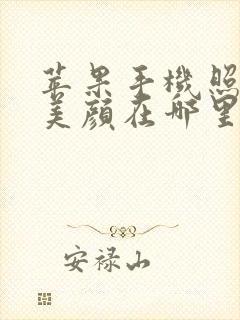 苹果手機照
美顔在哪里
安禄山